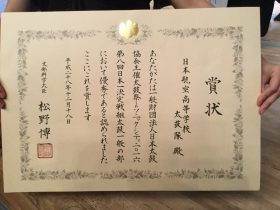 賞状
日本航空高等学校
太鼓隊 殿
あなたがたは一般財団法人日本太鼓
協会主催太鼓祭り
二〇一六
第八回日本一決定戦組太鼓一般の部
において優秀であると認められました
ここにこれを賞します
平成二十八年十二月十八日
文部科学大臣
松野博一